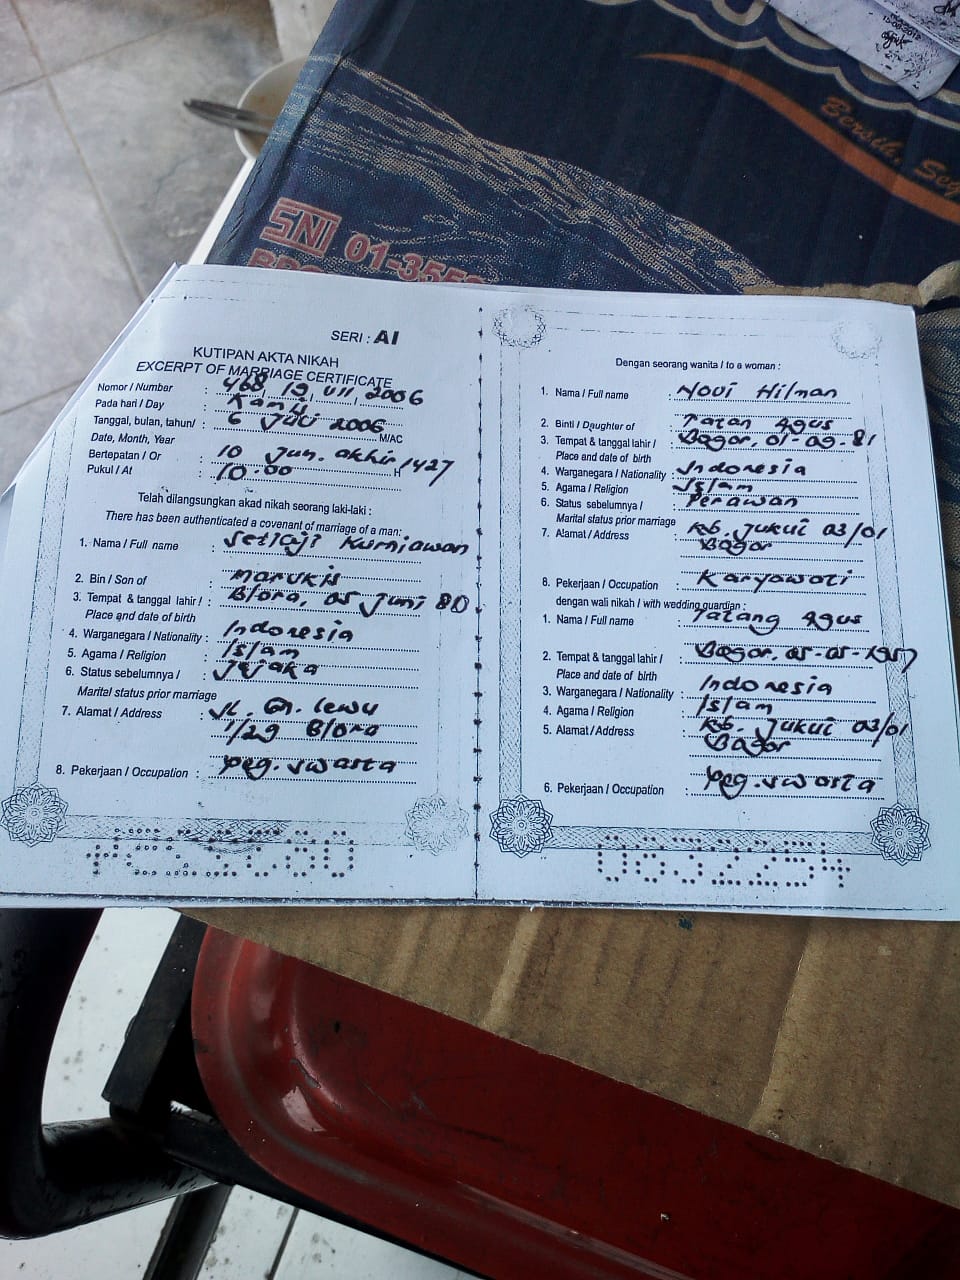 SNI 01-3553
Bersih, Seg
SERI : AI
KUTIPAN AKTA NIKAH
EXCERPT OF MARRIAGE CERTIFICATE
Nomor / Number : 468, 19, VII, 2006
Pada hari / Day : Kamis
Tanggal, bulan, tahun/ : 6 Juli 2006 M/AC
Date, Month, Year
Bertepatan / Or : 10 Jum. akhir 1427 H
Pukul / At : 10.00
Telah dilangsungkan akad nikah seorang laki-laki :
There has been authenticated a covenant of marriage of a man:
1. Nama / Full name : Setiaji Kurniawan
2. Bin / Son of : Marukis
3. Tempat & tanggal lahir / : Blora, 05 Juni 80
Place and date of birth
4. Warganegara / Nationality : Indonesia
5. Agama / Religion : Islam
6. Status sebelumnya / : Jejaka
Marital status prior marriage
7. Alamat / Address : Jl. lewu
1/29 Blora
8. Pekerjaan / Occupation : peg. swasta
Dengan seorang wanita / to a woman :
1. Nama / Full name : Novi Hilman
2. Binti / Daughter of : Agus
3. Tempat & tanggal lahir / : Bogor, 01-09-81
Place and date of birth
4. Warganegara / Nationality : Indonesia
5. Agama / Religion : Islam
6. Status sebelumnya / : Perawan
Marital status prior marriage
7. Alamat / Address : Kb. Jukut 03/01
Bogor
8. Pekerjaan / Occupation : Karyawati
dengan wali nikah / with wedding guardian :
1. Nama / Full name : Tatang Agus
2. Tempat & tanggal lahir / : Bogor, 05-05-1957
Place and date of birth
3. Warganegara / Nationality : Indonesia
4. Agama / Religion : Islam
5. Alamat / Address : Kb. Jukut 03/01
Bogor
6. Pekerjaan / Occupation : peg. swasta
0632254